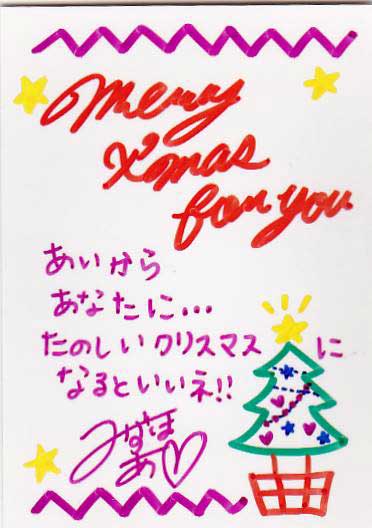 Merry
X'mas
for you
あいから
あなたに…
たのしいクリスマスに
なるといいネ!!